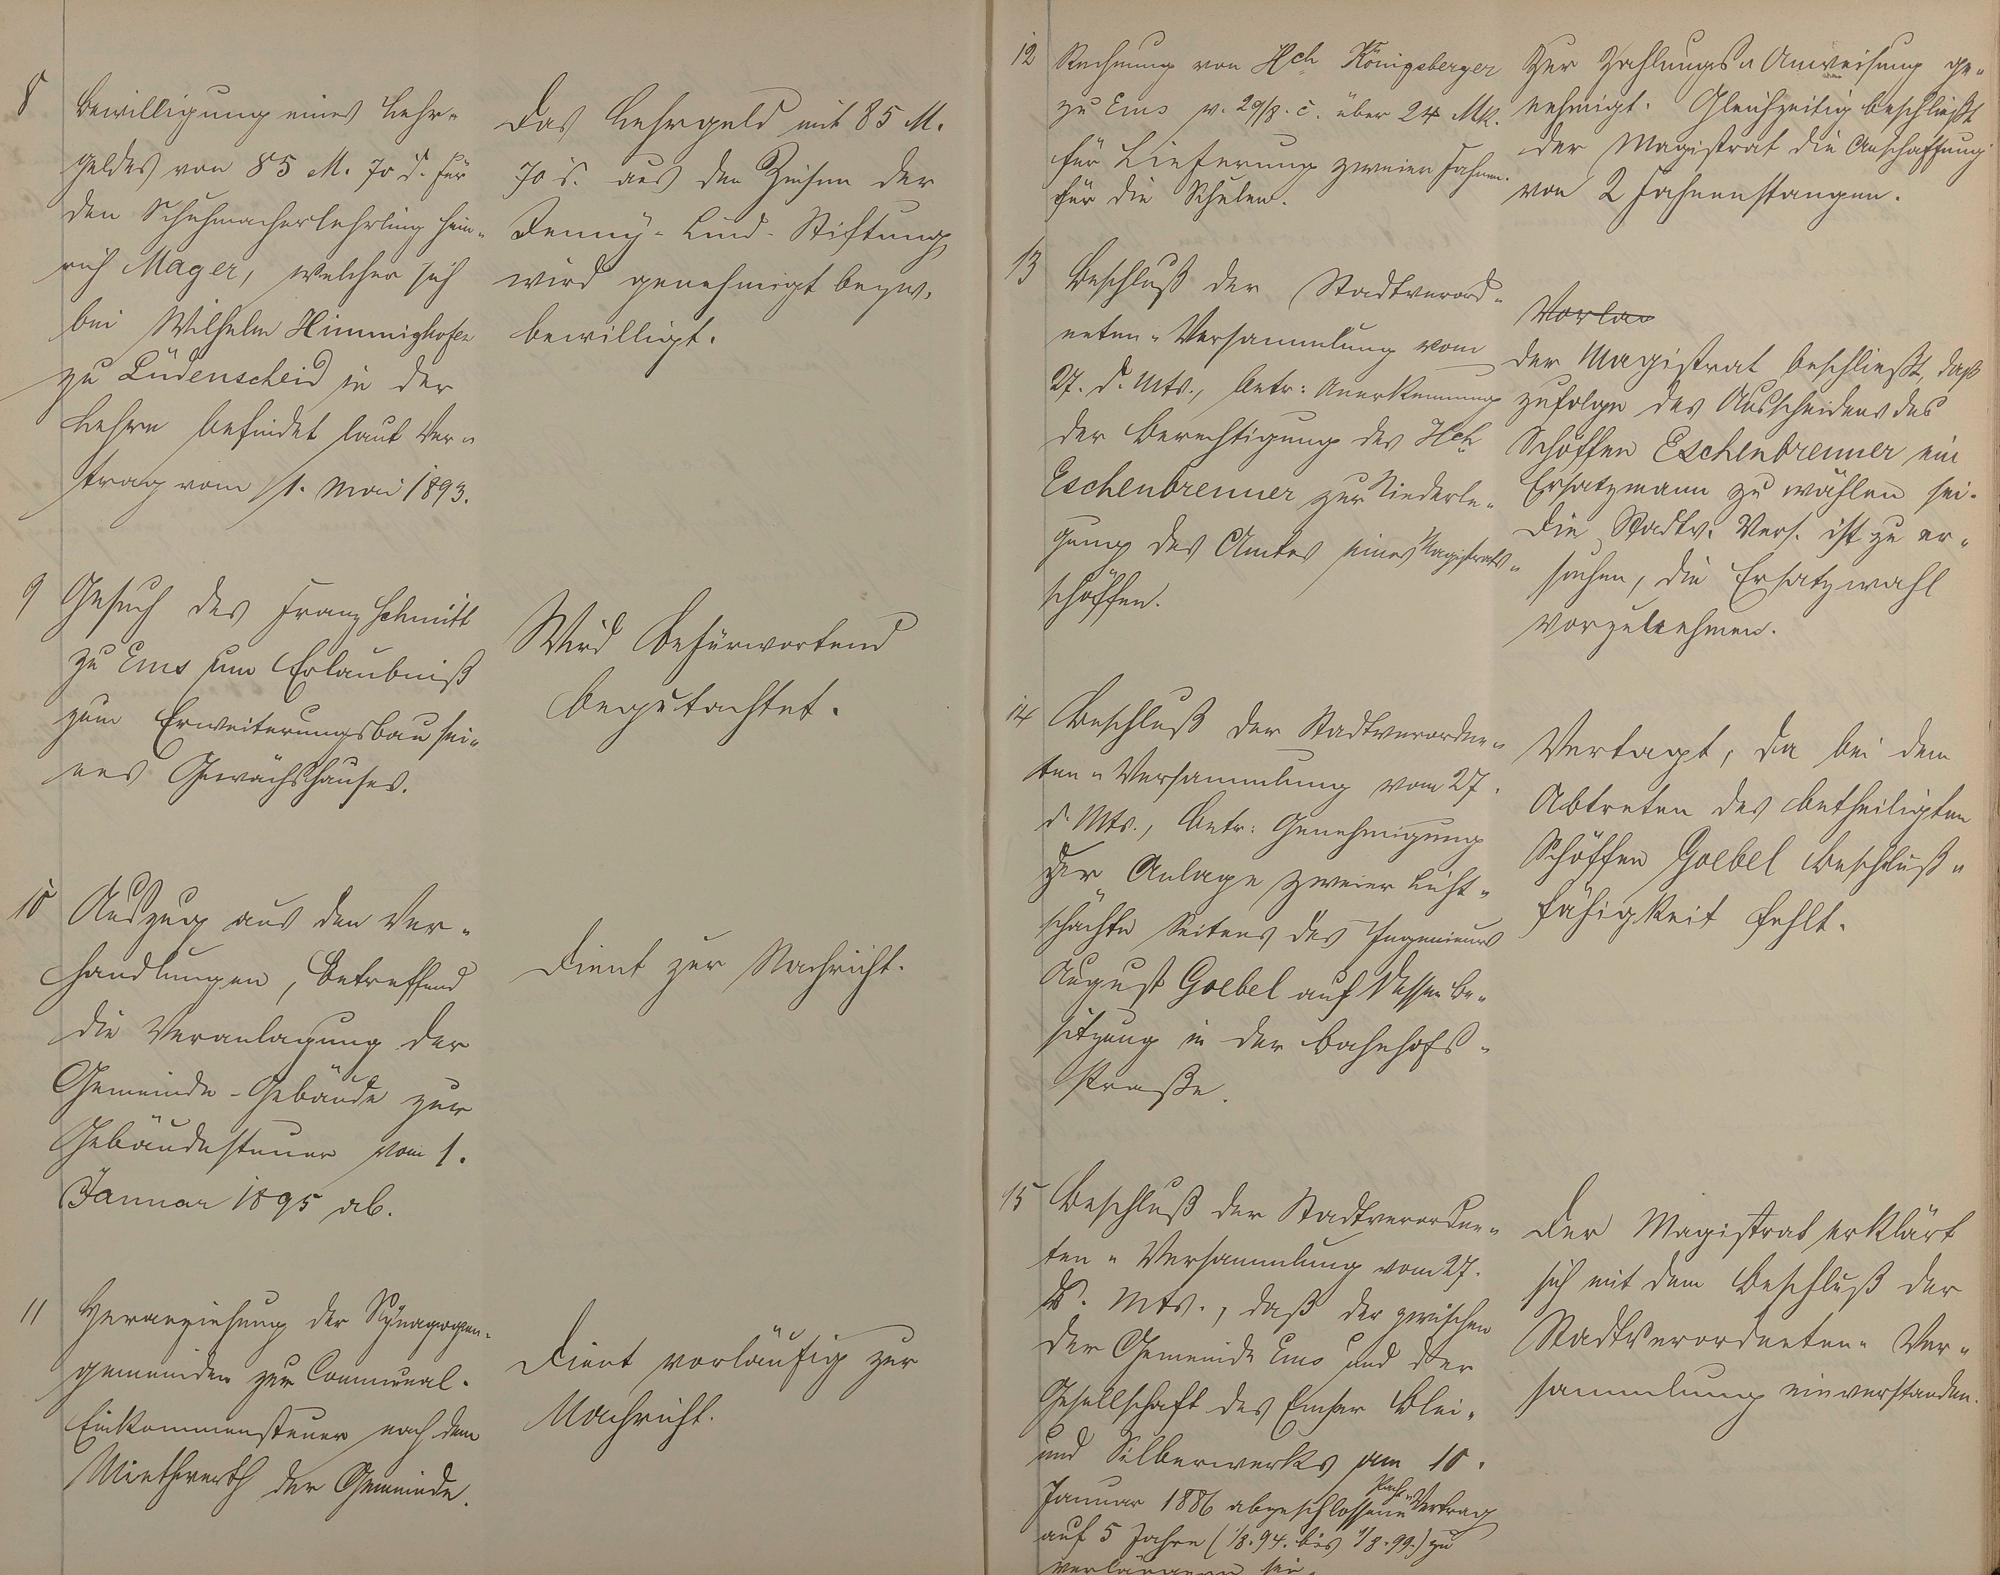 8
Bewilligung eines Lehr-
geldes von 85 M. 70 d. für
den Schuhmacherlehrling Hein-
rich Mager, welcher sich
bei Wilhelm Himmighofen
zu Lüdenscheid in der
Lehre befindet laut Ver-
trag vom 1. Mai 1893.
Das Lehrgeld mit 85 M.
70 d. aus den Zinsen der
Jenny-Lind-Stiftung
wird genehmigt bezw.
bewilligt.
9
Gesuch des Franz Schmitt
zu Ems um Erlaubniß
zum Erweiterungsbau sei-
nes Gewächshauses.
Wird befürwortend
begutachtet.
10
Auszug aus den Ver-
handlungen, betreffend
die Veranlagung der
Gemeinde-Gebäude zur
Gebäudesteuer vom 1.
Januar 1895 ab.
Dient zur Nachricht.
11
Heranziehung der Synagogen-
gemeinden zur Communal-
Einkommensteuer nach dem
Miethwerth der Gemeinde.
Dient vorläufig zur
Nachricht.
12
Rechnung von Hch Königsberger
zu Ems v. 29/8. c. über 24 Mk.
für Lieferung zweier Fahnen
für die Schulen.
Zur Zahlungs-Anweisung ge-
nehmigt. Gleichzeitig beschließt
der Magistrat die Anschaffung
von 2 Fahnenstangen.
13
Beschluß der Stadtverord-
neten-Versammlung vom
27. d. Mts., betr: Anerkennung
der Berechtigung des Hch
Eschenbrenner zur Niederle-
gung des Amtes eines Magistrats-
schöffen.
Vorlae
Der Magistrat beschließt, daß
zufolge des Ausscheidens des
Schöffen Eschenbrenner ein
Ersatzmann zu wählen sei.
Die Stadtv. Vers. ist zu er-
suchen, die Ersatzwahl
vorzunehmen.
14
Beschluß der Stadtverordne-
ten-Versammlung vom 27.
d. Mts., betr: Genehmigung
zur Anlage zweier Licht-
schächte Seitens des Ingenieurs
August Goebel auf dessen Be-
sitzung in der Bahnhofs-
straße.
Vertagt, da bei dem
Abtreten des betheiligten
Schöffen Goebel Beschluß-
fähigkeit fehlt.
15
Beschluß der Stadtverordne-
ten-Versammlung vom 27.
d. Mts., daß der zwischen
der Gemeinde Ems und der
Gesellschaft des Emser Blei-
und Silberwerks am 10.
Januar 1886 abgeschlossene Pacht-Vertrag
auf 5 Jahre (1/8.94. bis 1/8.99.) zu
verlängern sei.
Der Magistrat erklärt
sich mit dem Beschluß der
Stadtverordneten-Ver-
sammlung einverstanden.